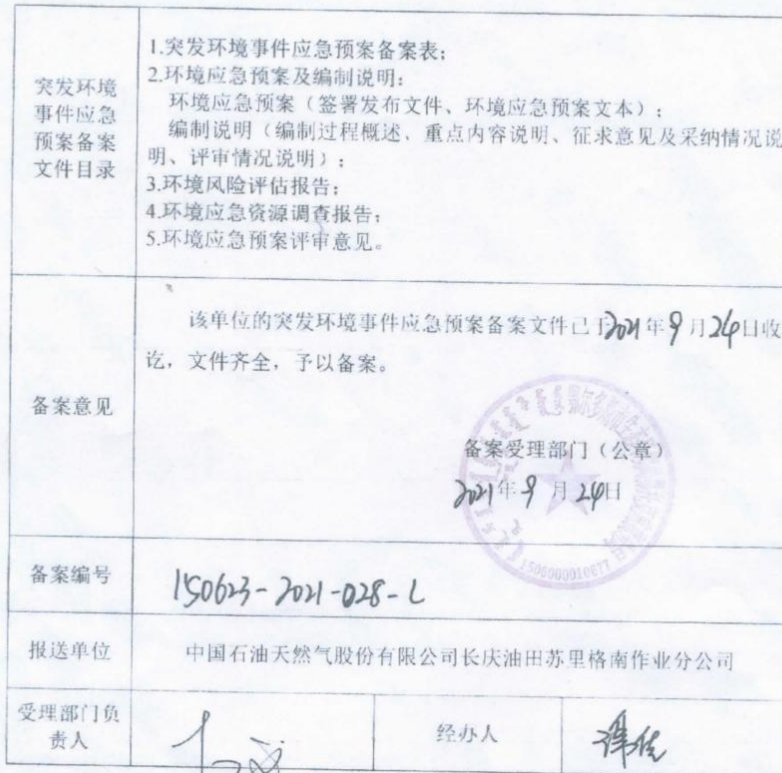 突发环境
事件应急
预案备案
文件目录
1.突发环境事件应急预案备案表;
2.环境应急预案及编制说明:
环境应急预案（签署发布文件、环境应急预案文本）;
编制说明（编制过程概述、重点内容说明、征求意见及采纳情况说
明、评审情况说明）;
3.环境风险评估报告;
4.环境应急资源调查报告;
5.环境应急预案评审意见。
备案意见
该单位的突发环境事件应急预案备案文件已于2021年9月24日收
讫，文件齐全，予以备案。
备案受理部门（公章）
2021年9月24日
备案编号
150623-2021-028-L
报送单位
中国石油天然气股份有限公司长庆油田苏里格南作业分公司
受理部门负
责人
经办人